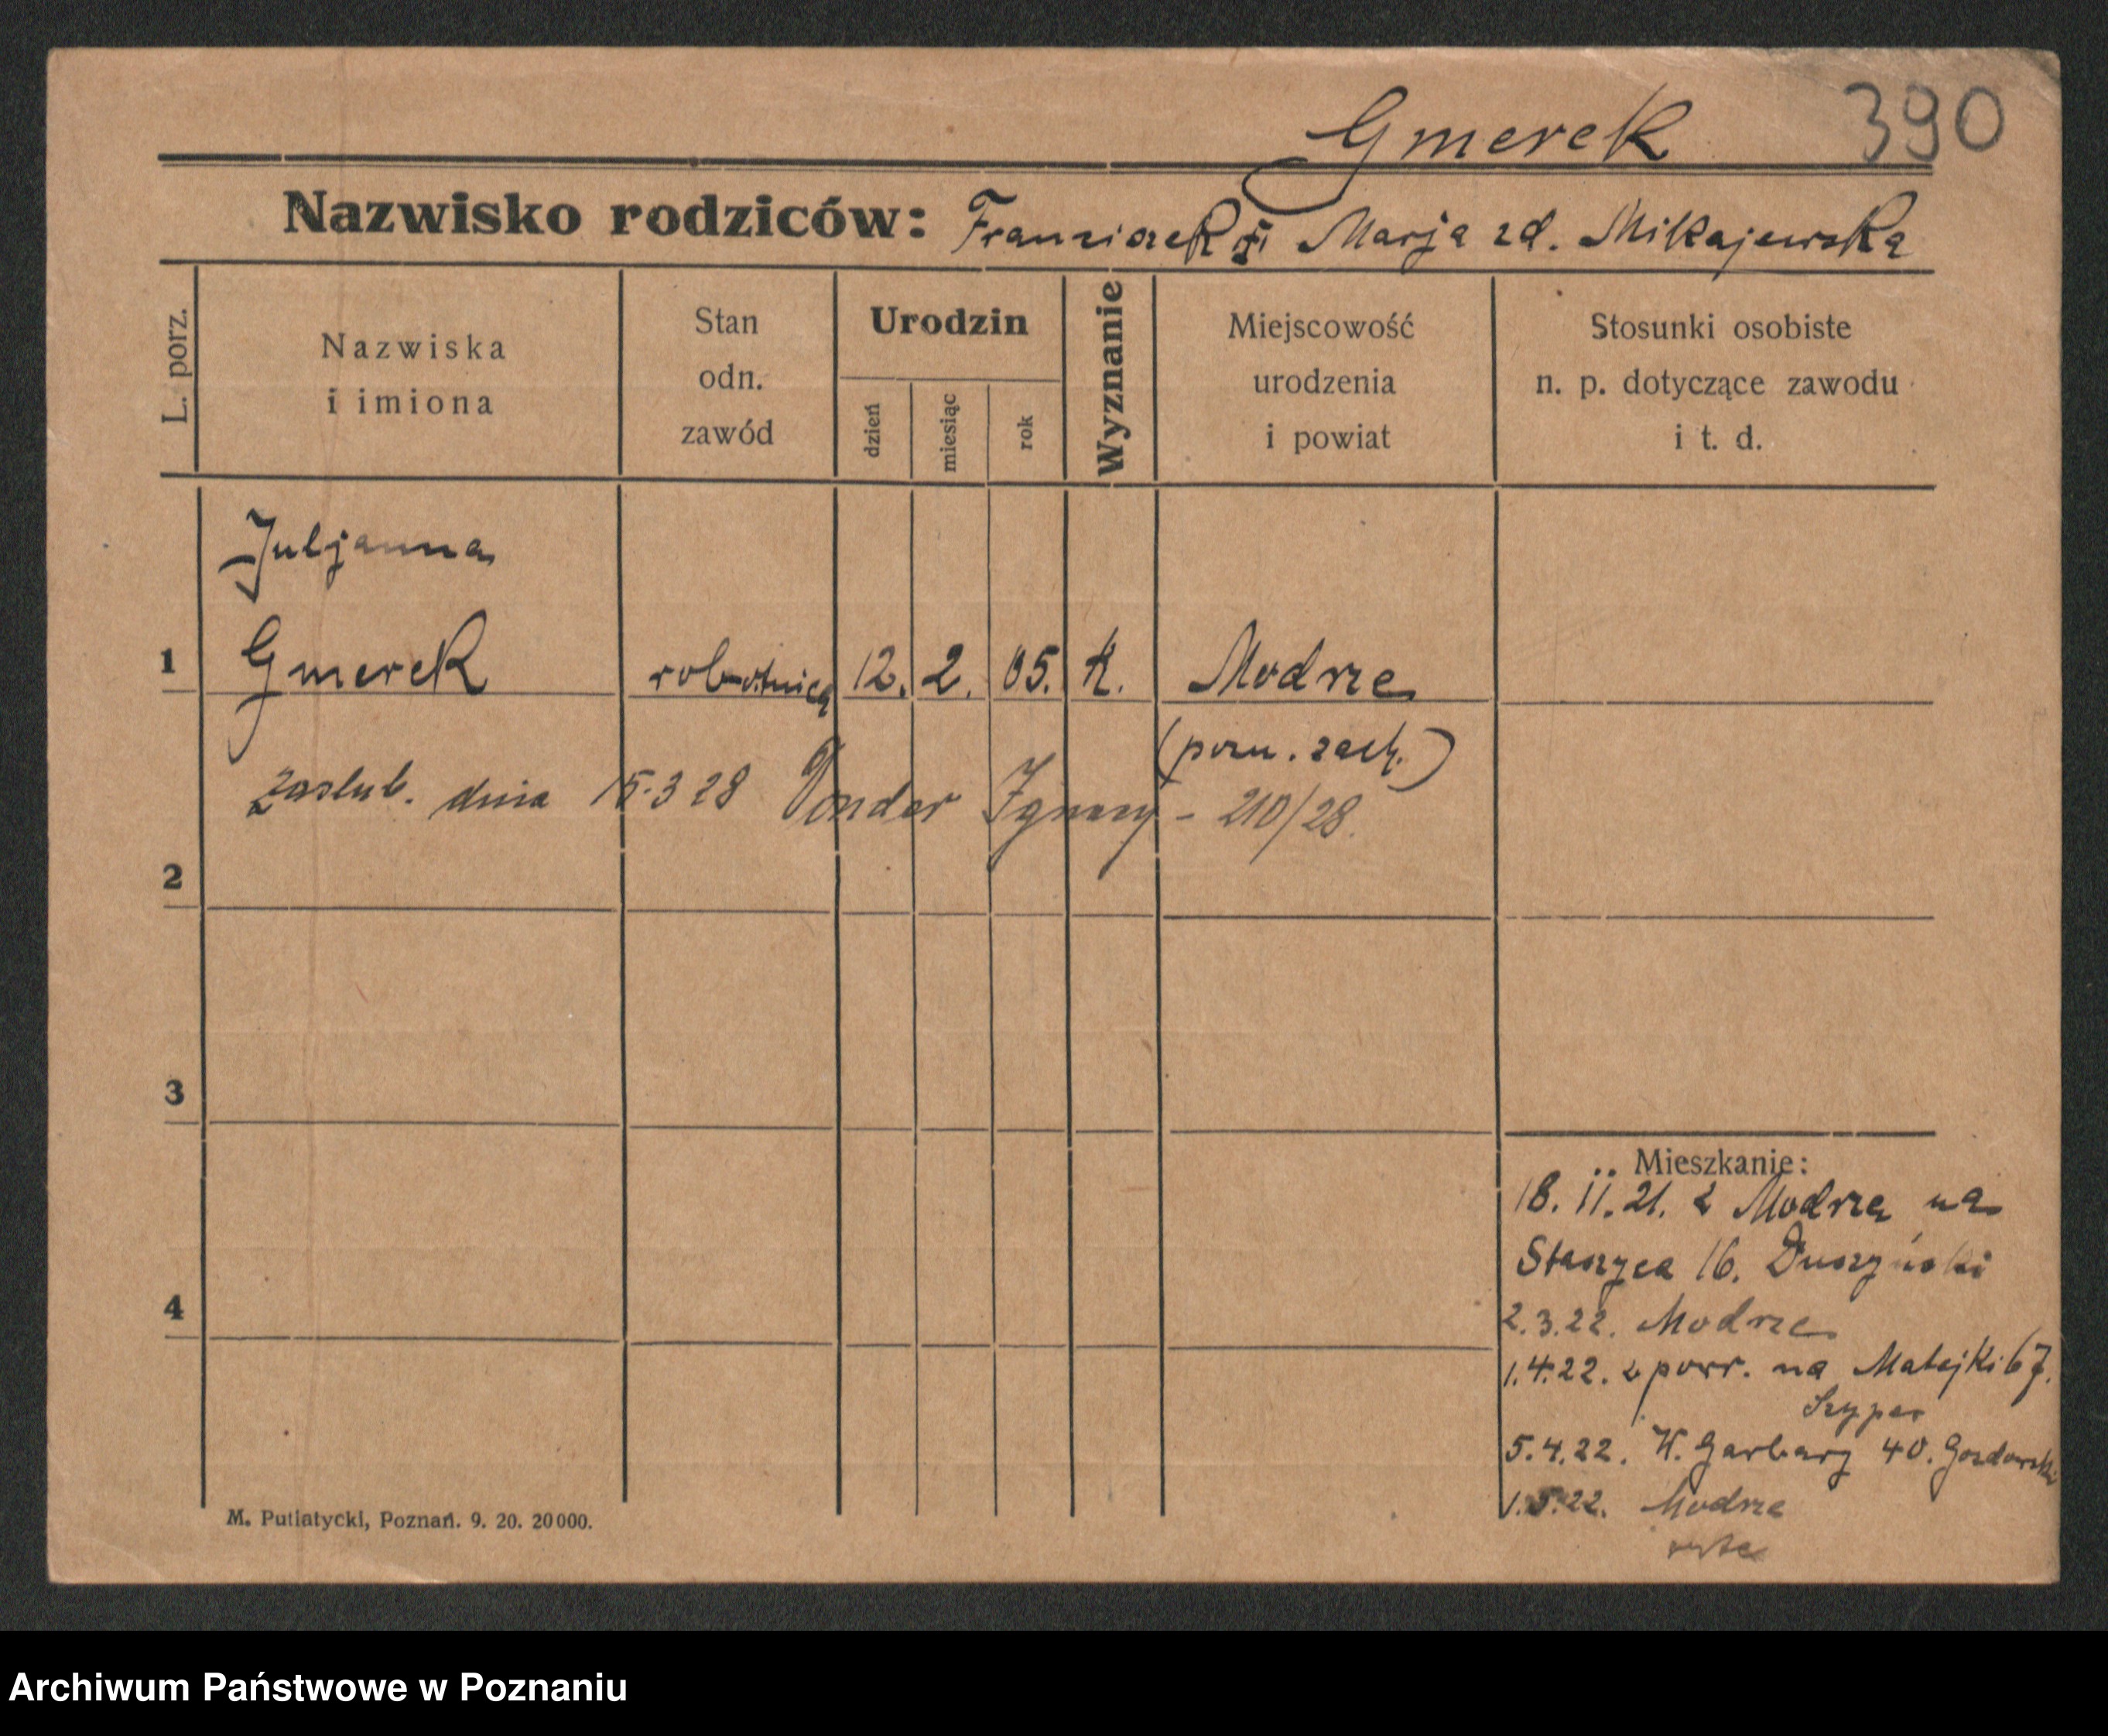 Gmerek 390
Nazwisko rodziców: Franciszek i Marja zd. Mikajewska
L. porz.
Nazwiska
i imiona
Stan
odn.
zawód
Urodzin
dzień
miesiąc
rok
Wyznanie
Miejscowość
urodzenia
i powiat
Stosunki osobiste
n. p. dotyczące zawodu
i t. d.
Juljanna
1 Gmerek robotnica 12. 2. 05. k. Modrze
(pozn. zach.)
zaslub. dnia 15.3 28 Ponder Ignacy - 210/28.
2
3
4
Mieszkanie:
18. 11. 21. z Modrze na
Staszyca 16. Duszyński
2.3.22. Modrze
1.4.22. z powr. na Matejki 67.
Szyper
5.4.22. W. Garbary 40.
1.5.22. Modrze
M. Putiatycki, Poznań. 9. 20. 20000.
Archiwum Państwowe w Poznaniu